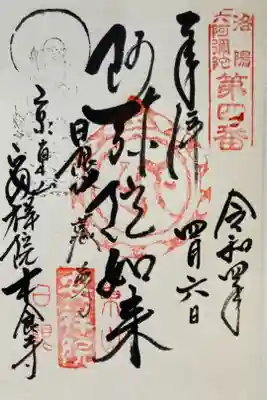 洛陽
六阿彌陀
第四番
令和四年
四月六日
奉拝
阿弥陀如来
日限地蔵尊
京東山
安祥院木食寺
安祥院